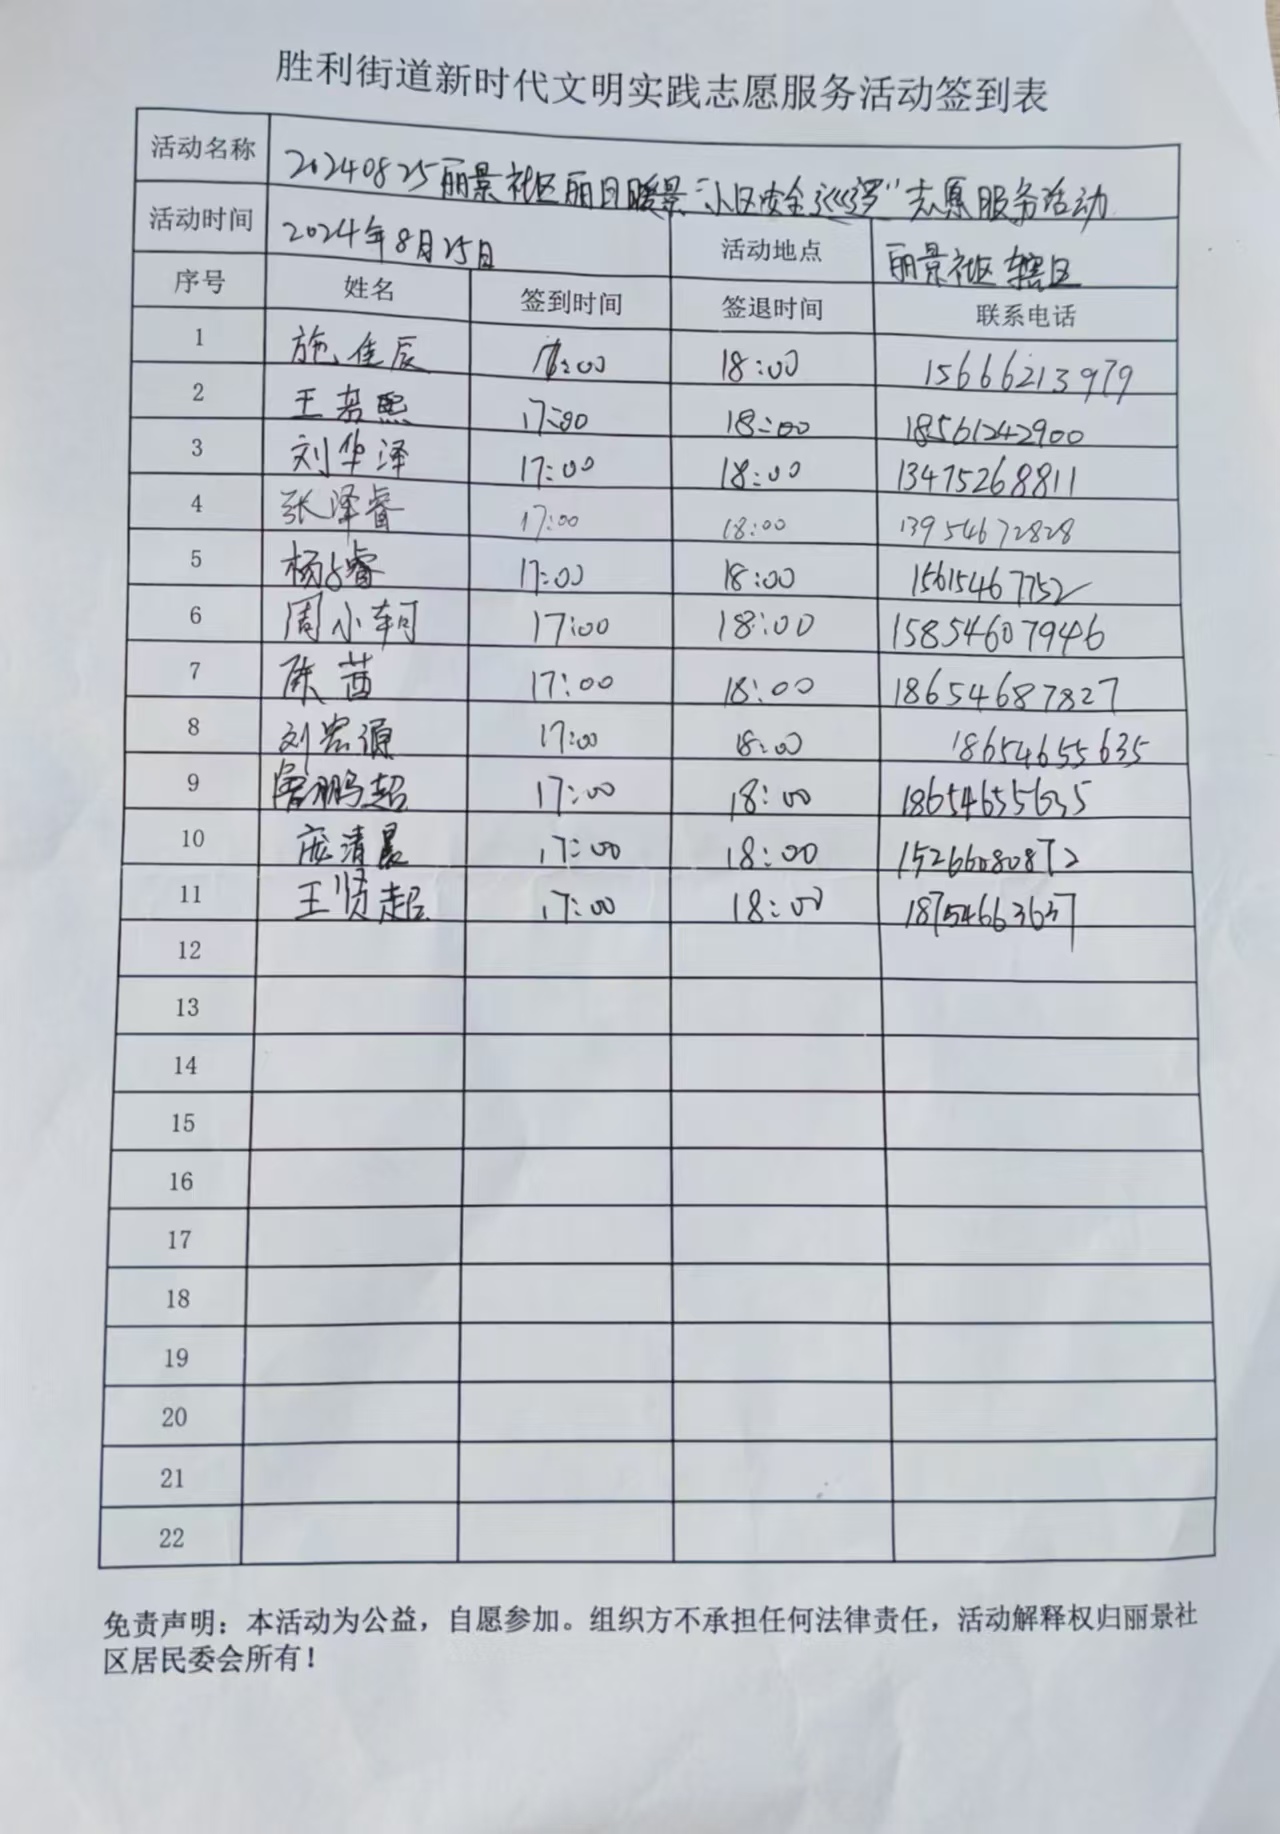 胜利街道新时代文明实践志愿服务活动签到表
活动名称 20240825丽景社区丽日暖景“小区安全巡逻”志愿服务活动
活动时间 2024年8月25日 活动地点 丽景社区辖区
序号 姓名 签到时间 签退时间 联系电话
1 施佳辰 :00 18:00 15666213979
2 王若熙 17:00 18:00 18561242900
3 刘华泽 17:00 18:00 13475268811
4 张泽睿 17:00 18:00 13954672828
5 杨 睿 17:00 18:00 15615467752
6 周小轲 17:00 18:00 15854607946
7 陈茜 17:00 18:00 18654687827
8 刘宏源 17:00 18:00 18654655635
9 鹏超 17:00 18:00 18654655635
10 庞清晨 17:00 18:00 15266080872
11 王贤超 17:00 18:00 18754663637
12
13
14
15
16
17
18
19
20
21
22
免责声明：本活动为公益，自愿参加。组织方不承担任何法律责任，活动解释权归丽景社
区居民委会所有！